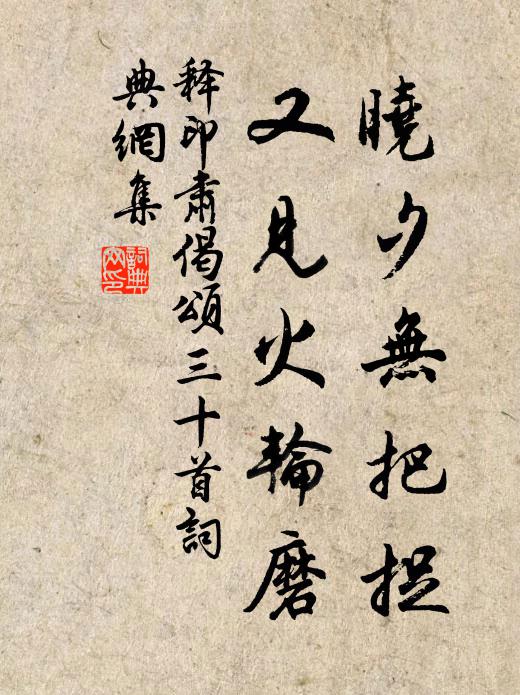 曉夕無把捉
又見火輪磨
释印肅偈頌三十首詞
典網集
詞典